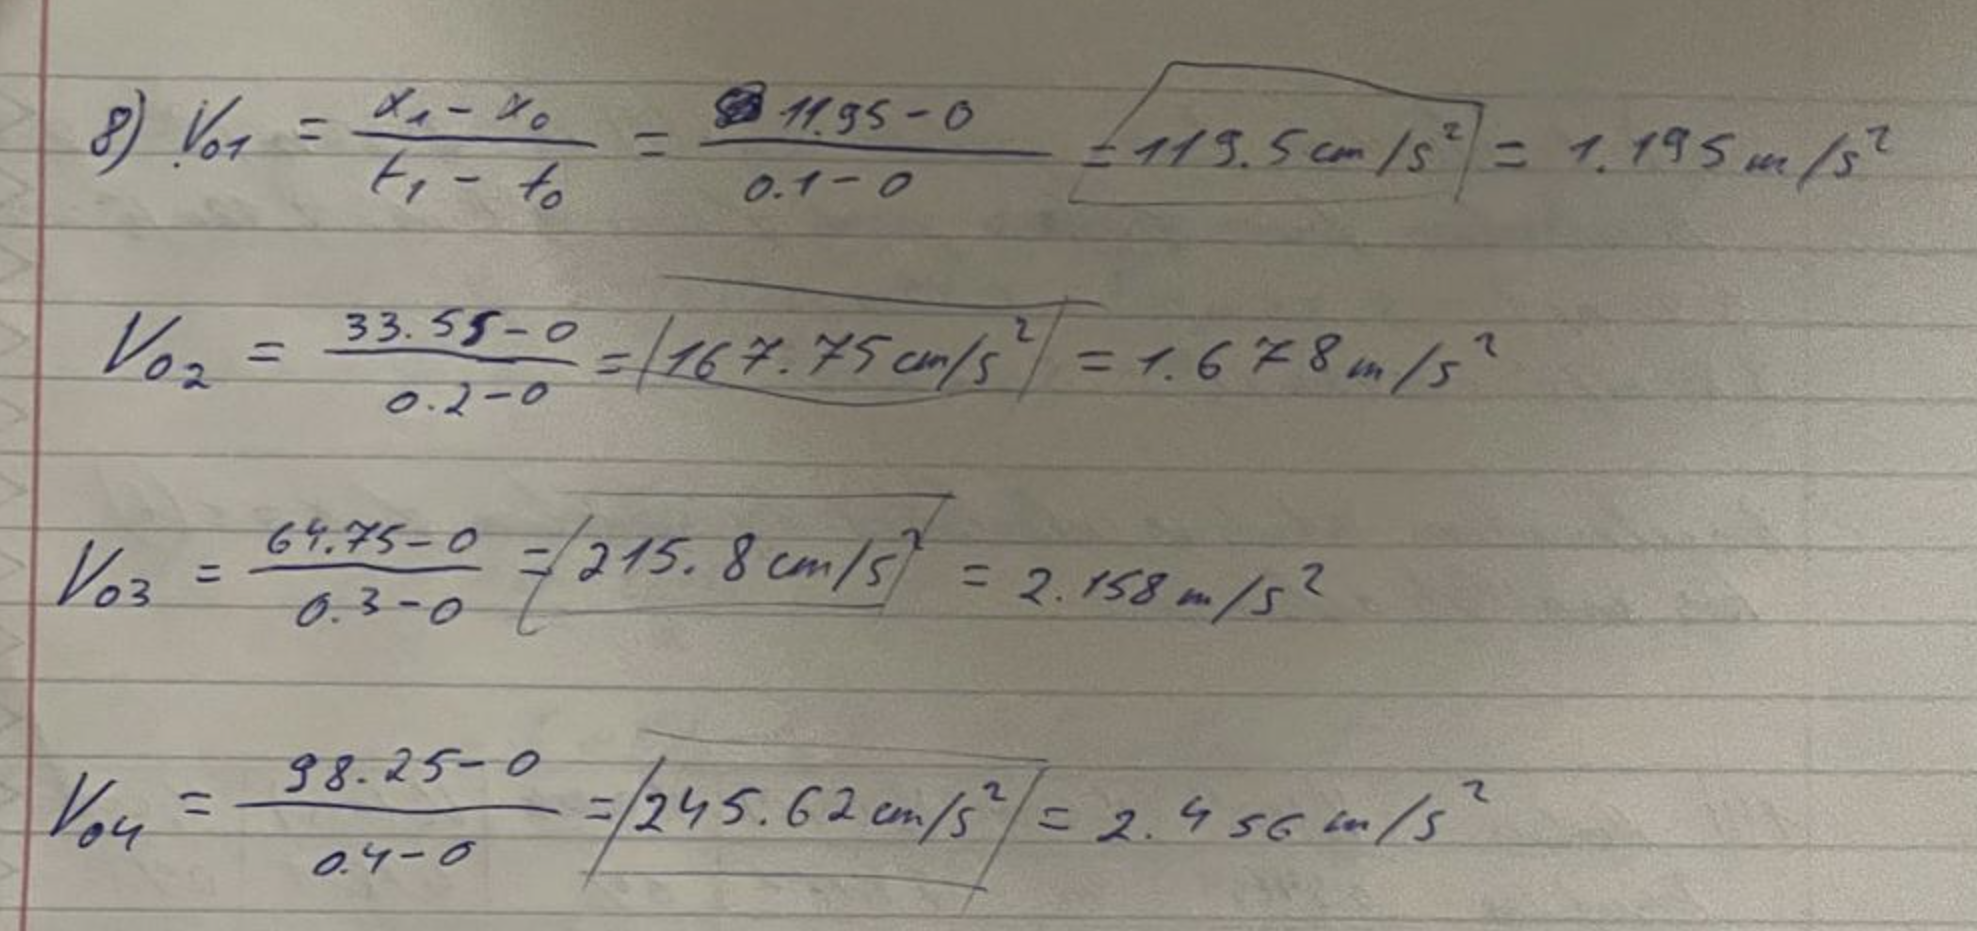 8) V₀₁ = x₁ - x₀ / t₁ - t₀ = 11.95 - 0 / 0.1 - 0 = 119.5 cm/s² = 1.195 m/s²
V₀₂ = 33.55 - 0 / 0.2 - 0 = 167.75 cm/s² = 1.678 m/s²
V₀₃ = 64.75 - 0 / 0.3 - 0 = 215.8 cm/s² = 2.158 m/s²
V₀₄ = 98.25 - 0 / 0.4 - 0 = 245.62 cm/s² = 2.456 m/s²